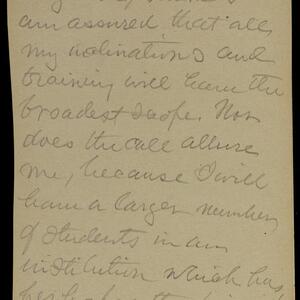 am assured that all
my inclinations and
training will have the
broadest scope. Nor
does the call allure
me, because I will
have a larger number
of students in an
institution which has